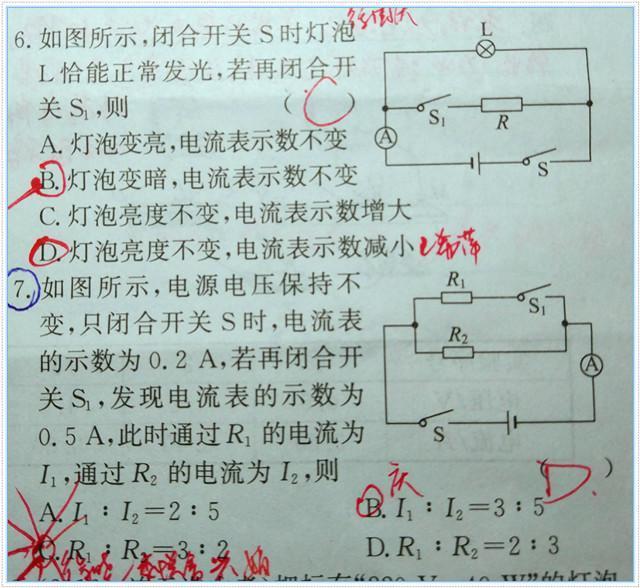 6. 如图所示,闭合开关 S 时灯泡
L 恰能正常发光,若再闭合开
关 S₁,则 ( C )
A. 灯泡变亮,电流表示数不变
B. 灯泡变暗,电流表示数不变
C. 灯泡亮度不变,电流表示数增大
D. 灯泡亮度不变,电流表示数减小
L
S₁
R
A
S
7. 如图所示,电源电压保持不
变,只闭合开关 S 时,电流表
的示数为 0.2 A,若再闭合开
关 S₁,发现电流表的示数为
0.5 A,此时通过 R₁ 的电流为
I₁,通过 R₂ 的电流为 I₂,则 ( D. )
R₁
S₁
R₂
A
S
A. I₁ : I₂=2 : 5 B. I₁ : I₂=3 : 5
C. R₁ : R₂=3 : 2 D. R₁ : R₂=2 : 3